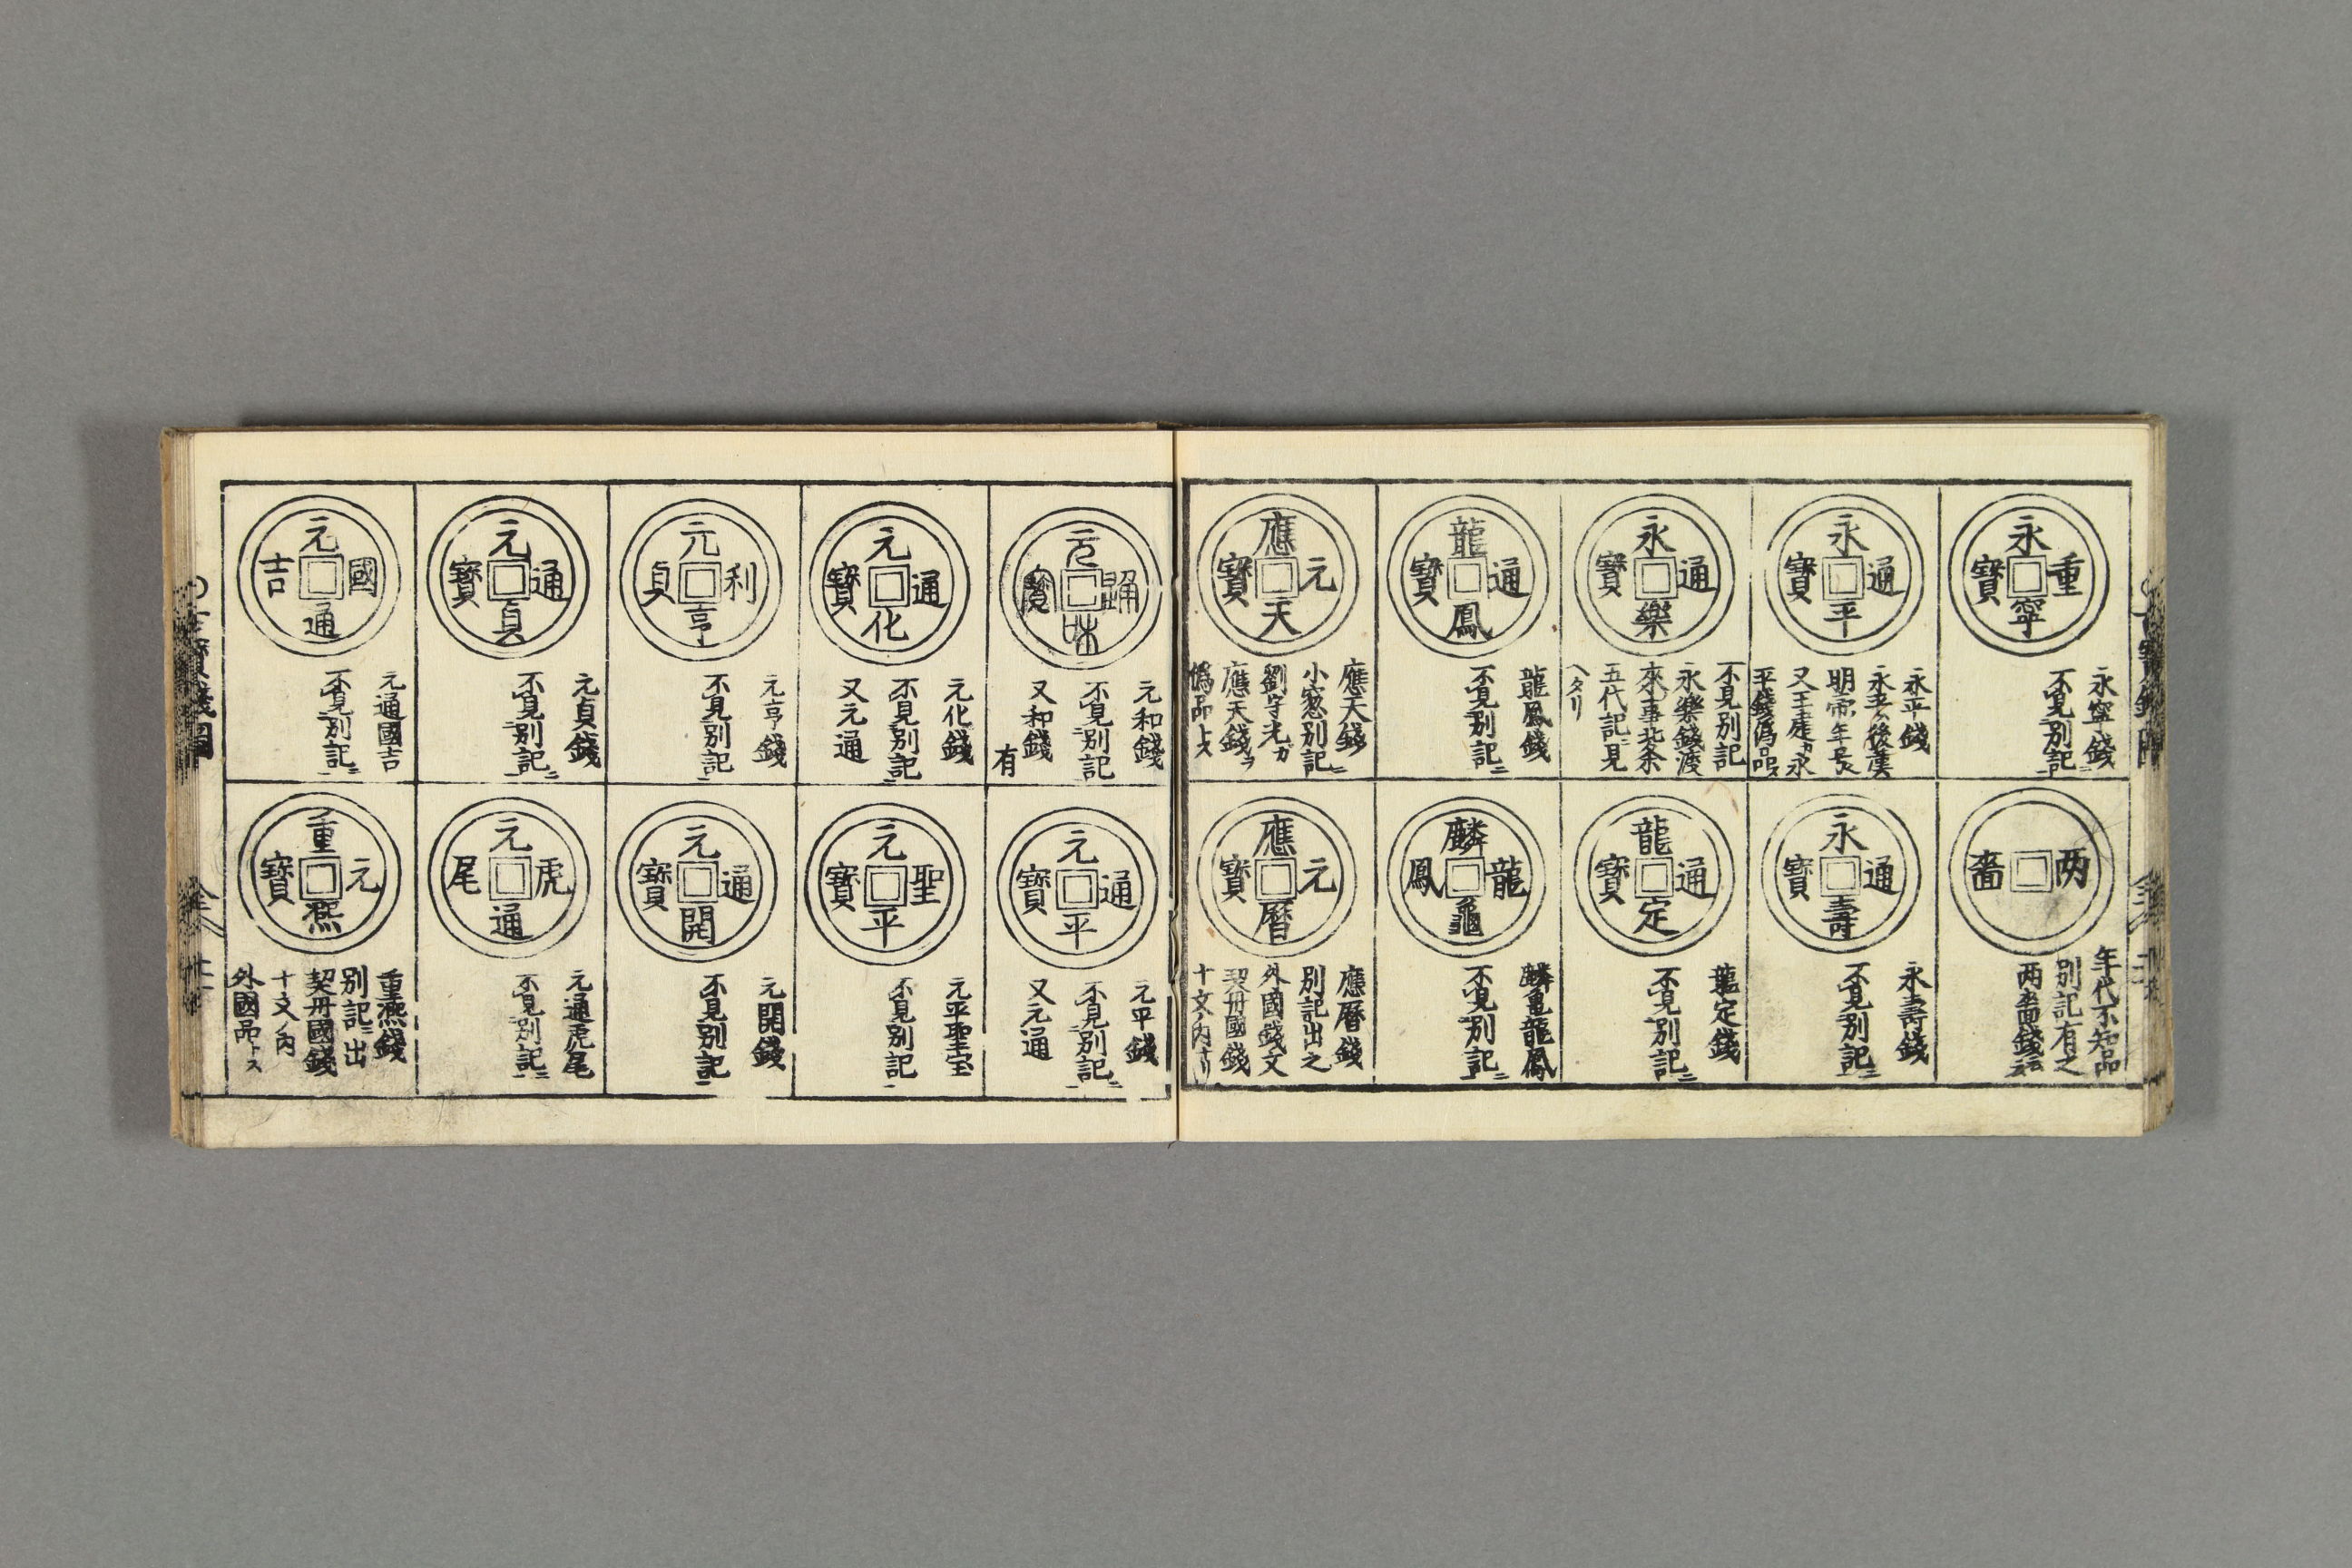 永寧重寶
永寧錢
不見別記ニ
兩
年代不知品
別記有之
永平通寶
永平錢
永平ハ後漢
明帝年号
又王建カ永
平錢偽品
永壽通寶
永壽錢
不見別記ニ
永樂通寶
不見別記
永樂錢渡
來事北条
五代記ニ見
ヘタリ
龍定通寶
龍定錢
不見別記ニ
龍鳳通寶
龍鳳錢
不見別記ニ
麟龜龍鳳
麟龜龍鳳
不見別記ニ
應天元寶
應天錢
小窓別記ニ
劉守光カ
應天錢ヲ
偽品トス
應曆元寶
應曆錢
別記出之
外國錢文
契丹國錢
十文ノ内ナリ
元和通寶
元和錢
不見別記ニ
又和錢
有
元平通寶
元平錢
不見別記ニ
又元通
元化通寶
元化錢
不見別記ニ
又元通
元平聖寶
元平聖宝
不見別記ニ
元亨利貞
元亨錢
不見別記ニ
元開通寶
元開錢
不見別記ニ
元貞通寶
元貞錢
不見別記ニ
元通虎尾
元通虎尾
不見別記ニ
元通國吉
元通國吉
不見別記ニ
重熈元寶
重熈錢
別記ニ出
契丹國錢
十文ノ内
外國品トス